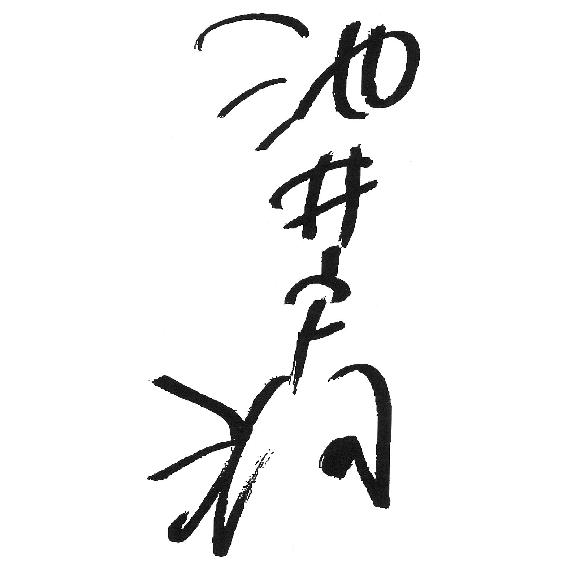 池井戸潤